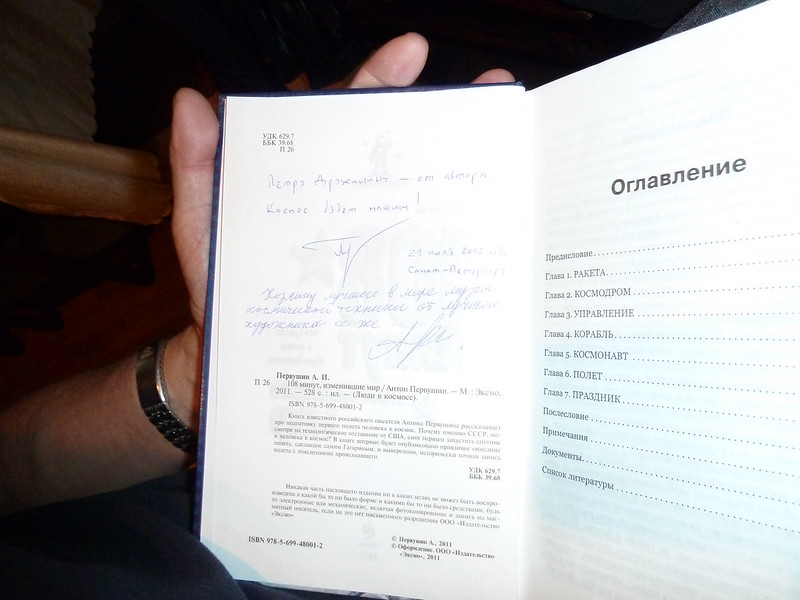 УДК 629.7
ББК 39.68
П 26
— от автора.
Космос будет нашим!
21 июля 2012 года
Санкт-Петербург
Хозяину лучшего в мире музея
космической техники от лучшего
художника
Первушин А. И.
П 26 108 минут, изменившие мир / Антон Первушин. — М. : Эксмо,
2011. — 528 с. : ил. — (Люди в космосе).
ISBN 978-5-699-48001-2
Книга известного российского писателя Антона Первушина рассказывает
про подготовку первого полета человека в космос. Почему именно СССР, не-
смотря на технологическое отставание от США, смог первым запустить спутник
и человека в космос? В книге впервые будет опубликовано правдивое описание
полета, сделанное самим Гагариным, и выверенная, исторически точная запись
полета с пояснениями происходящего.
УДК 629.7
ББК 39.68
Никакая часть настоящего издания ни в каких целях не может быть воспро-
изведена в какой бы то ни было форме и какими бы то ни было средствами, будь
то электронные или механические, включая фотокопирование и запись на маг-
нитный носитель, если на это нет письменного разрешения ООО «Издательство
«Эксмо».
© Первушин А., 2011
© Оформление. ООО «Издательство
«Эксмо», 2011
ISBN 978-5-699-48001-2
Оглавление
Предисловие
Глава 1. РАКЕТА
Глава 2. КОСМОДРОМ
Глава 3. УПРАВЛЕНИЕ
Глава 4. КОРАБЛЬ
Глава 5. КОСМОНАВТ
Глава 6. ПОЛЕТ
Глава 7. ПРАЗДНИК
Послесловие
Примечания
Документы
Список литературы